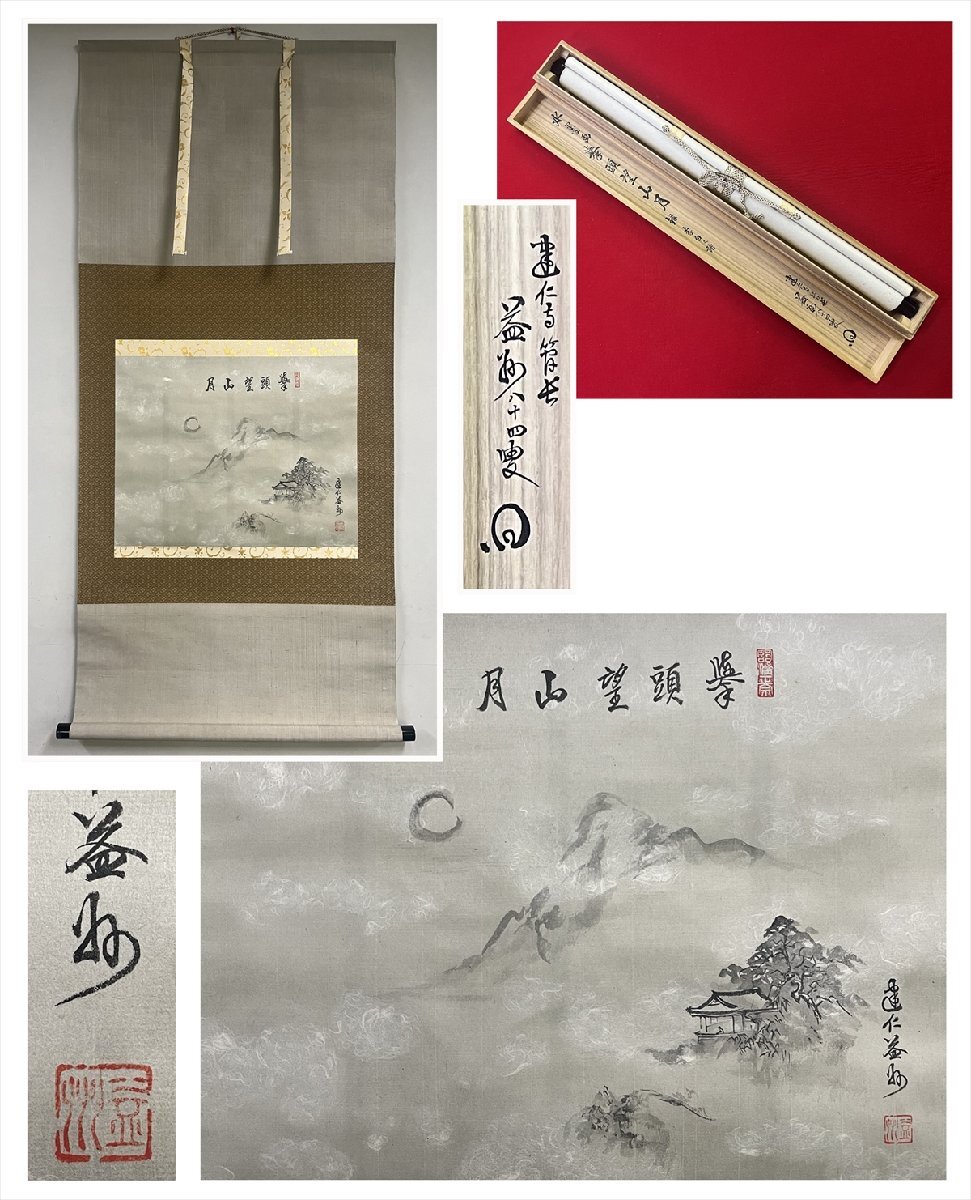 擧頭望山月
建仁益州
水墨画 擧頭望山月
建仁寺管長
益州八十四叟
擧頭望山月
建仁益州
益州
益州
益州